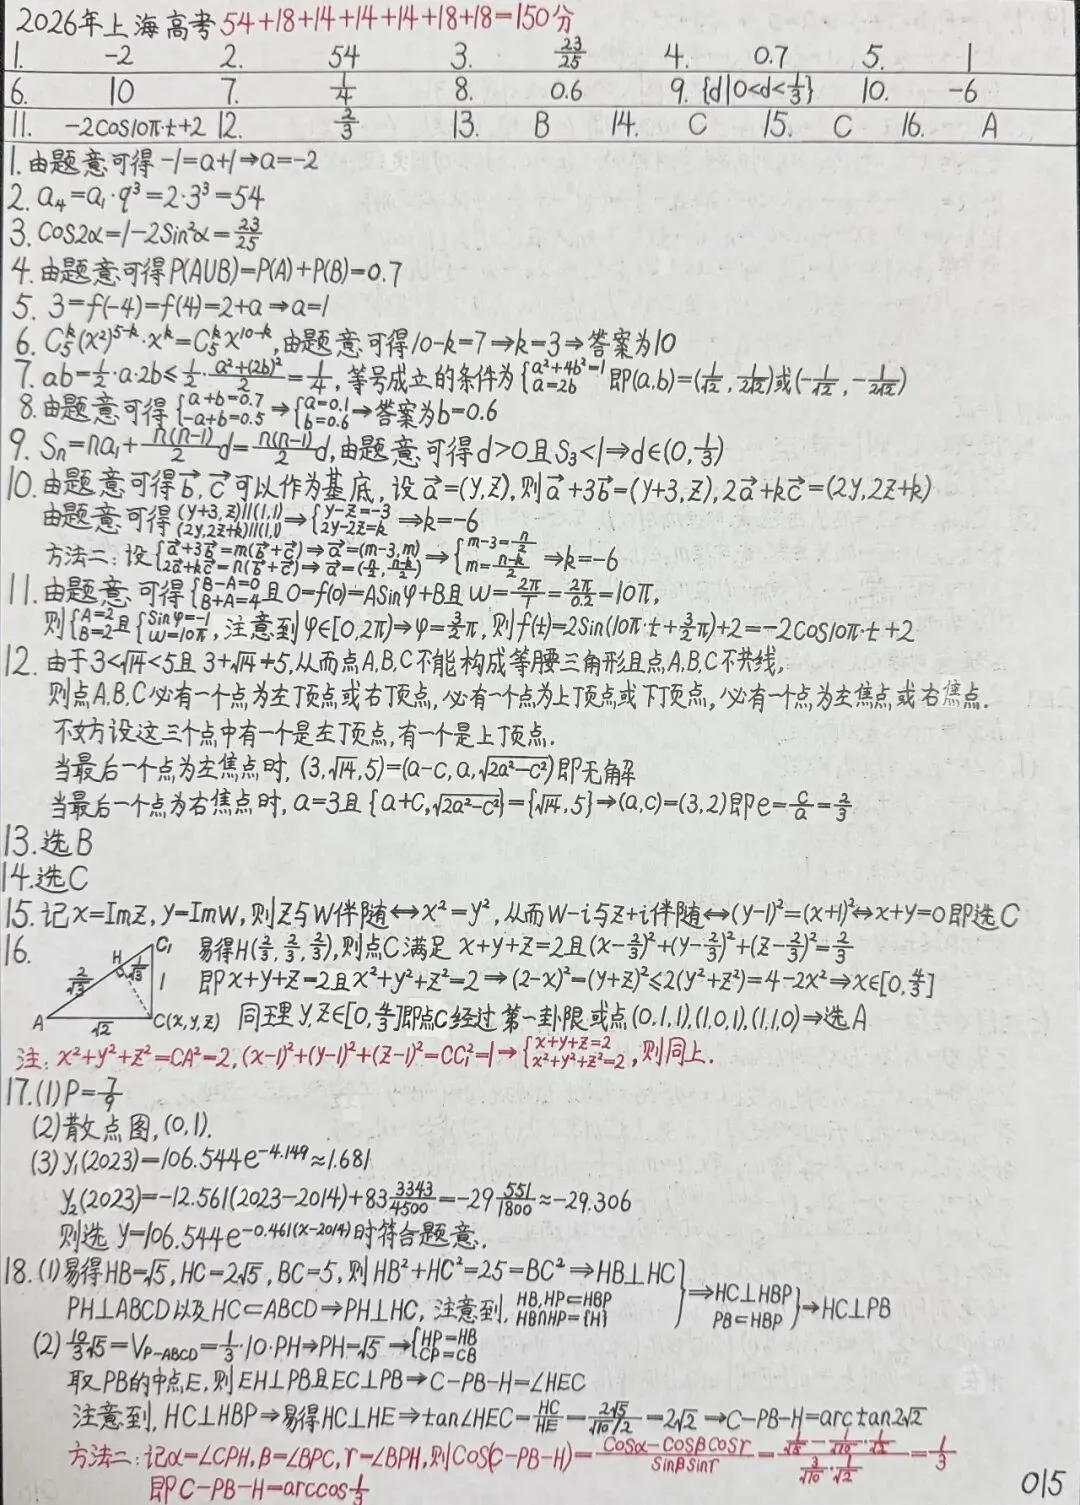 2026年上海高考 54+18+14+14+14+18+18=150分
1. -2 2. 54 3. 23/25 4. 0.7 5. 1
6. 10 7. 1/4 8. 0.6 9. {d|0<d<1/3} 10. -6
11. -2cos10π·t+2 12. 2/3 13. B 14. C 15. C 16. A
1. 由题意可得 -1=a+1⇒a=-2
2. a₄=a₁·q³=2·3³=54
3. cos2α=1-2sin²α=23/25
4. 由题意可得P(A∪B)=P(A)+P(B)=0.7
5. 3=f(-4)=f(4)=2+a⇒a=1
6. C₅ᵏ(x²)⁵⁻ᵏ·xᵏ=C₅ᵏx¹⁰⁻ᵏ,由题意可得10-k=7⇒k=3⇒答案为10
7. ab=1/2·a·2b≤1/2·(a²+(2b)²)/2=1/4, 等号成立的条件为{a²+4b²=1 a=2b 即(a,b)=(1/√2, 1/2√2)或(-1/√2, -1/2√2)
8. 由题意可得{a+b=0.7 -a+b=0.5⇒{a=0.1 b=0.6⇒答案为b=0.6
9. Sₙ=na₁+n(n-1)/2 d=n(n-1)/2 d,由题意可得d>0且S₃<1⇒d∈(0,1/3)
10. 由题意可得b⃗,c⃗可以作为基底, 设a⃗=(y,z),则a⃗+3b⃗=(y+3,z),2a⃗+kc⃗=(2y,2z+k)
由题意可得(y+3,z)∥(1,1) (2y,2z+k)∥(1,1)⇒{y-z=-3 2y-2z=k⇒k=-6
方法二: 设{a⃗+3b⃗=m(b⃗+c⃗)⇒a⃗=(m-3,m) 2a⃗+kc⃗=n(b⃗+c⃗)⇒a⃗=(n/2,(n-k)/2)→{m-3=n/2 m=(n-k)/2⇒k=-6
11. 由题意可得{B-A=0 B+A=4且0=f(0)=Asinφ+B且w=2π/T=2π/0.2=10π,
则{A=2 B=2且{sinφ=-1 w=10π, 注意到φ∈[0,2π)⇒φ=3/2π,则f(t)=2sin(10π·t+3/2π)+2=-2cos10π·t+2
12. 由于3<√14<5且3+√14≠5,从而点A,B,C不能构成等腰三角形且点A,B,C不共线,
则点A,B,C必有一个点为左顶点或右顶点,必有一个点为上顶点或下顶点,必有一个点为左焦点或右焦点.
不妨设这三个点中有一个是左顶点,有一个是上顶点.
当最后一个点为左焦点时, (3,√14,5)=(a-c,a,√(2a²-c²))即无解
当最后一个点为右焦点时, a=3且{a+c,√(2a²-c²)}={√14,5}⇒(a,c)=(3,2)即e=c/a=2/3
13. 选B
14. 选C
15. 记x=Imz,y=Imw,则z与w伴随⟷x²=y²,从而w-i与z+i伴随⟷(y-1)²=(x+1)²⟷x+y=0即选C
16. 易得H(2/3,2/3,2/3),则点C满足 x+y+z=2且(x-2/3)²+(y-2/3)²+(z-2/3)²=2/3
即x+y+z=2且x²+y²+z²=2⇒(2-x)²=(y+z)²≤2(y²+z²)=4-2x²⇒x∈[0,4/3]
同理y,z∈[0,4/3]即点C经过第一卦限或点(0,1,1),(1,0,1),(1,1,0)⇒选A
A H C₁ C(x,y,z) 2/√3 1/√3 1 √2
注: x²+y²+z²=CA²=2,(x-1)²+(y-1)²+(z-1)²=CC₁²=1→{x+y+z=2 x²+y²+z²=2,则同上.
17.(1)P=7/9
(2)散点图,(0,1).
(3)y₁(2023)=106.544e^-4.149≈1.681
y₂(2023)=-12.561(2023-2014)+83 3343/4500=-29 551/1800≈-29.306
则选 y=106.544e^-0.461(x-2014)时符合题意.
18.(1)易得HB=√5,HC=2√5,BC=5,则HB²+HC²=25=BC²⇒HB⊥HC
PH⊥ABCD以及HC⊂ABCD⇒PH⊥HC, 注意到, HB,HP⊂HBP HB∩HP={H}}⇒HC⊥HBP PB⊂HBP}→HC⊥PB
(2)10/3√5=V_P-ABCD=1/3·10·PH⇒PH=√5→{HP=HB CP=CB
取PB的中点E,则EH⊥PB且EC⊥PB⇒C-PB-H=∠HEC
注意到, HC⊥HBP⇒易得HC⊥HE⇒tan∠HEC=HC/HE=2√5/(√10/2)=2√2→C-PB-H=arctan2√2
方法二:记α=∠CPH,β=∠BPC,γ=∠BPH,则cos(C-PB-H)=(cosα-cosβcosγ)/(sinβsinγ)=(1/√5-1/√10·1/√2)/(3/√10·1/√2)=1/3
即C-PB-H=arccos1/3
015